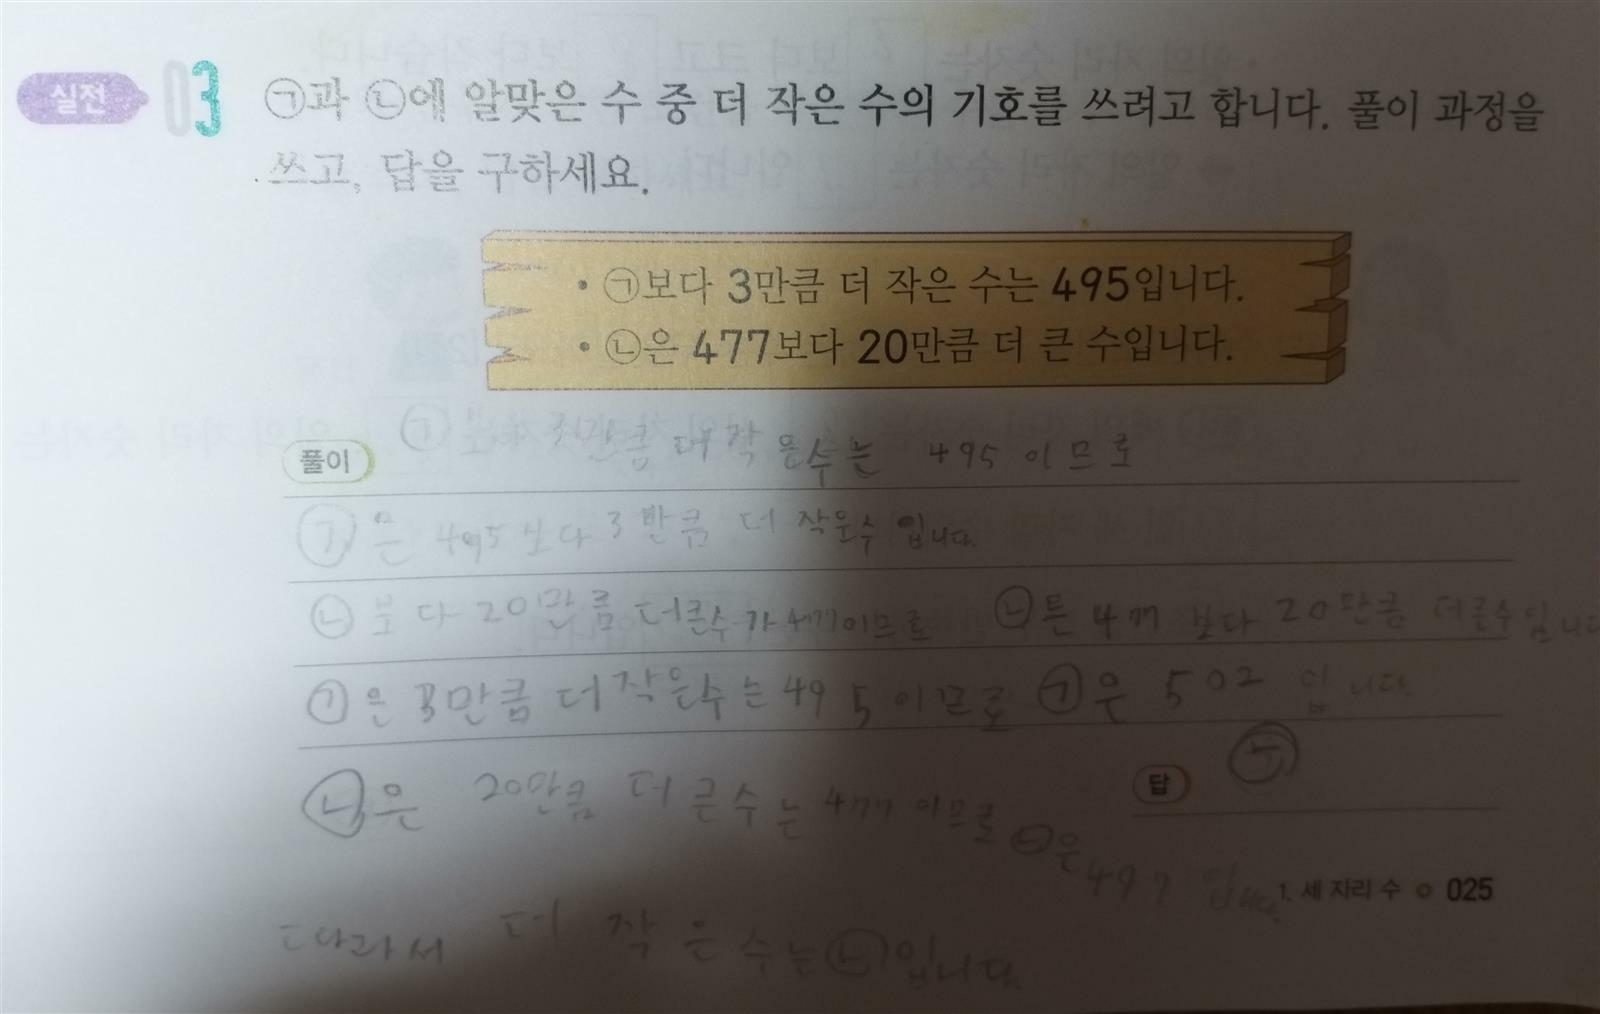 실전 03 ㉠과 ㉡에 알맞은 수 중 더 작은 수의 기호를 쓰려고 합니다. 풀이 과정을
쓰고, 답을 구하세요.
• ㉠보다 3만큼 더 작은 수는 495입니다.
• ㉡은 477보다 20만큼 더 큰 수입니다.
풀이 ㉠보다 3만큼 더 작은수는 495이므로
㉠은 495보다 3만큼 더 작은수입니다.
㉡보다 20만큼 더큰수가 477이므로 ㉡은 477보다 20만큼 더큰수입니다
㉠은 3만큼 더 작은수는 495이므로 ㉠은 502입니다.
㉡은 20만큼 더 큰수는 477이므로 ㉡은 497입니다.
답 ㉡
따라서 더 작은수는 ㉡입니다.
1. 세 자리 수 025